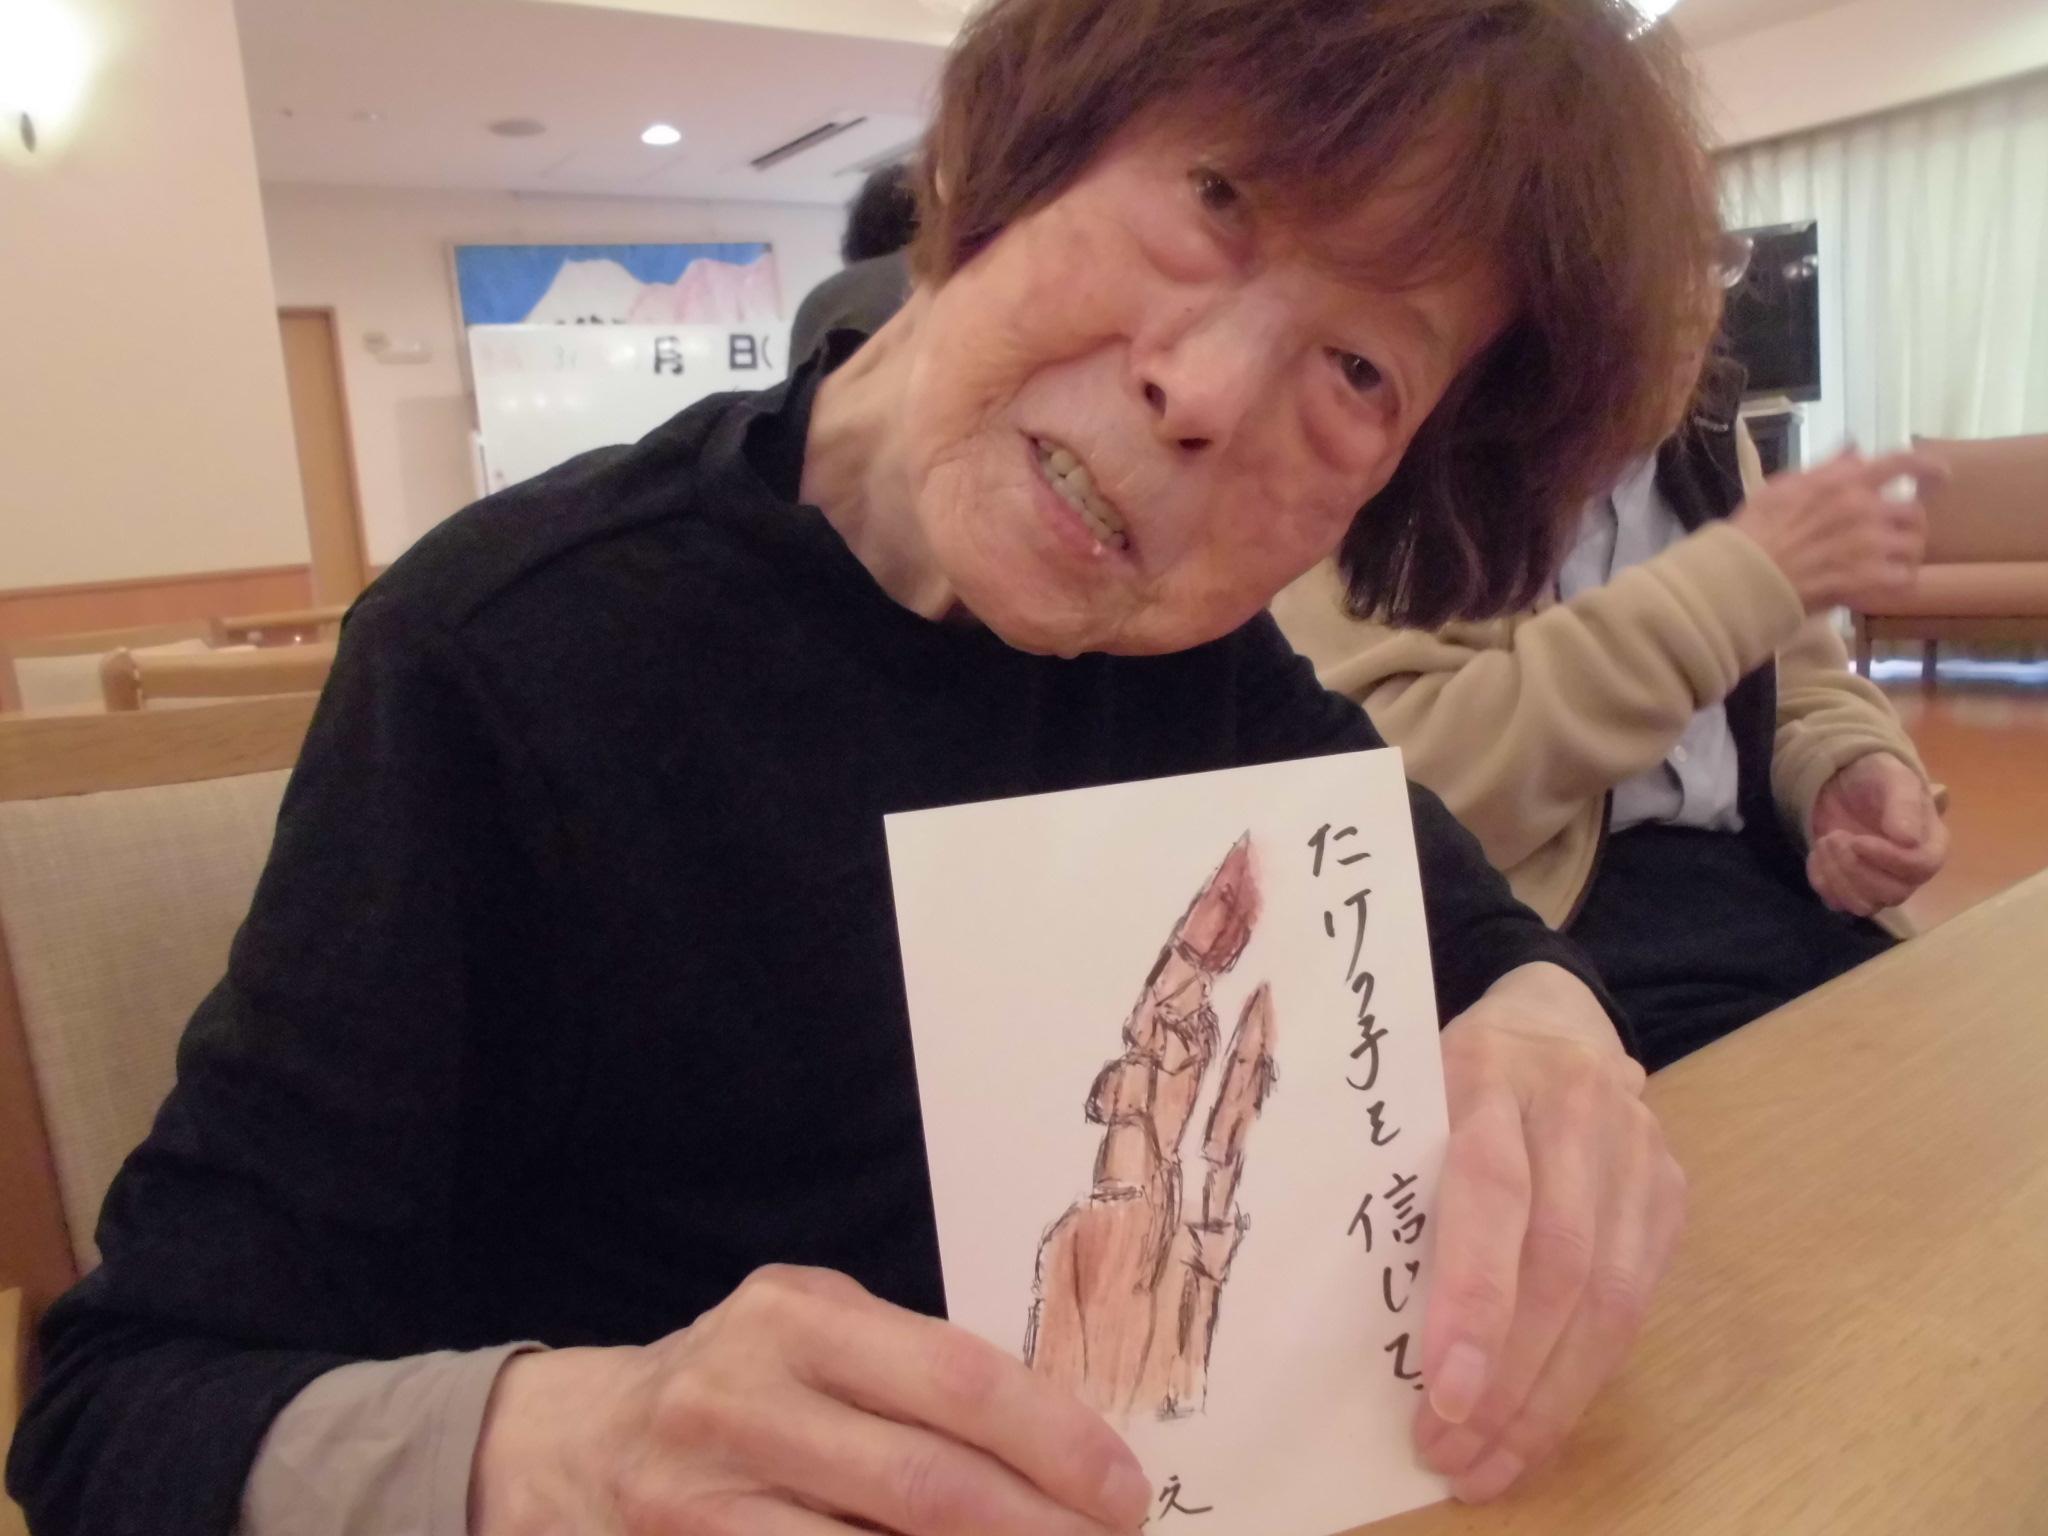 月 日(
たけの子を信じて、
え